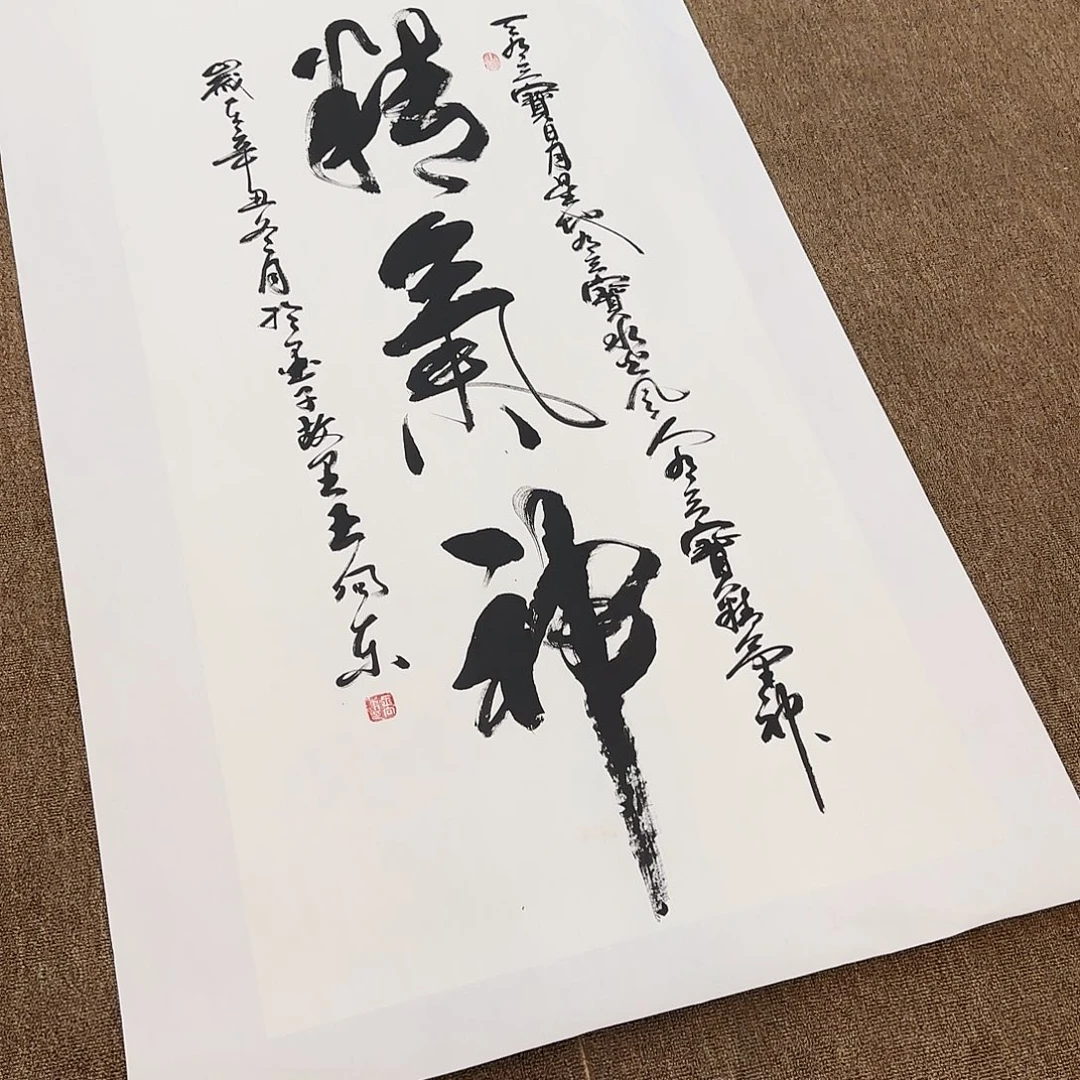 天有三寶日月星地有三寶水火風人有三寶精氣神
精氣神
歲在辛丑冬月於墨子故里王向東